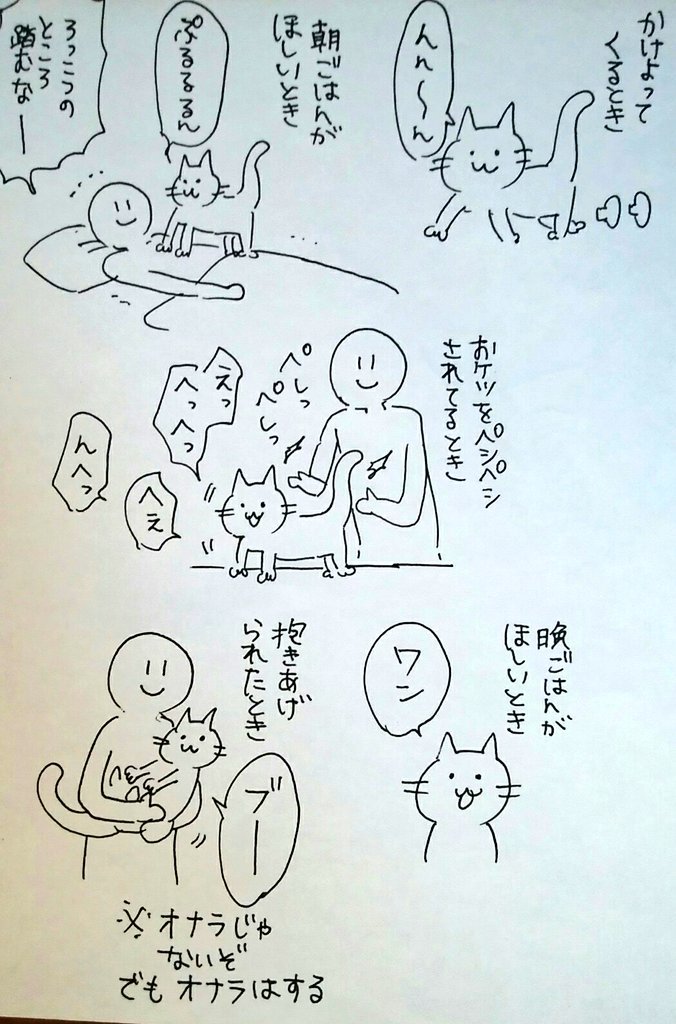 かけよって
くるとき
んん～ん
朝ごはんが
ほしいとき
ぷるるるん
ろっこつの
ところ
踏むなー
おケツをペシペシ
されてるとき
ペしっ
ペしっ
えっ
へっへっ
へぇ
んへっ
晩ごはんが
ほしいとき
ワン
抱きあげ
られたとき
ブー
※オナラじゃ
ないぞ
でもオナラはする